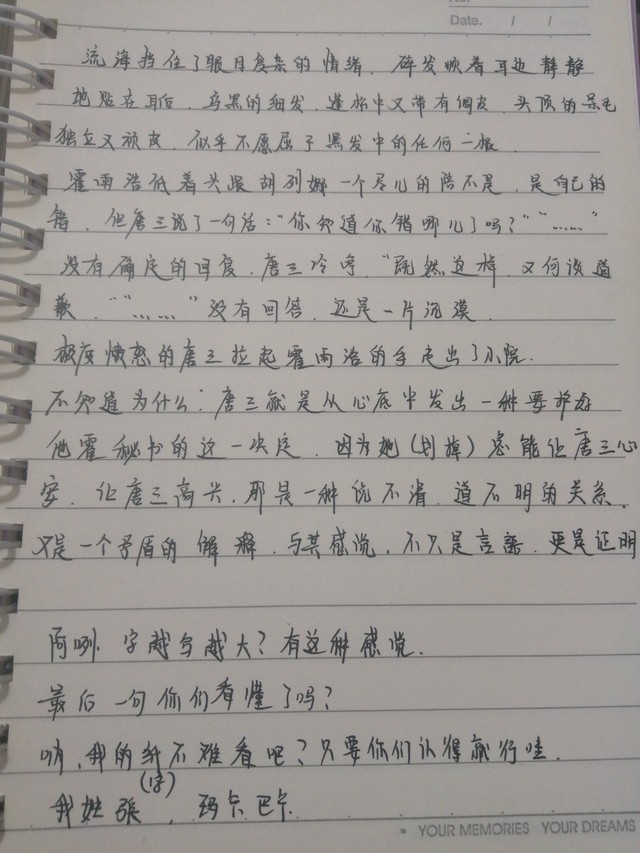 No.
Date.    /    /
流海挡住了眼目复杂的情绪，碎发顺着耳边静静
地贴在耳后，乌黑的细发，蓬松中又带有倔皮，头顶的呆毛
独立又顽皮，似乎不愿屈于黑发中的任何一根。
霍雨浩低着头跟胡列娜一个尽儿的陪不是，是自己的
错，但唐三说了一句话：“你知道你错哪儿了吗？”“……”
没有确定的回复，唐三冷哼，“既然这样，又何谈道
歉。”“……”没有回答，还是一片沉漠。
极度愤怒的唐三拉起霍雨浩的手走出了小院.
不知道为什么：唐三就是从心底中发出一种要护好
他霍秘书的这一决定，因为她(划掉)总能让唐三心
安，让唐三高兴，那是一种说不清，道不明的关系，
又是一个矛盾的解释，与其感说，不只是言语，更是证明
阿咧，字越写越大？有这种感觉.
最后一句你们看懂了吗？
呐，我的纸不难看吧？只要你们认得就行哇.
(字)
我姓張，玛卡巴卡
• YOUR MEMORIES   YOUR DREAMS